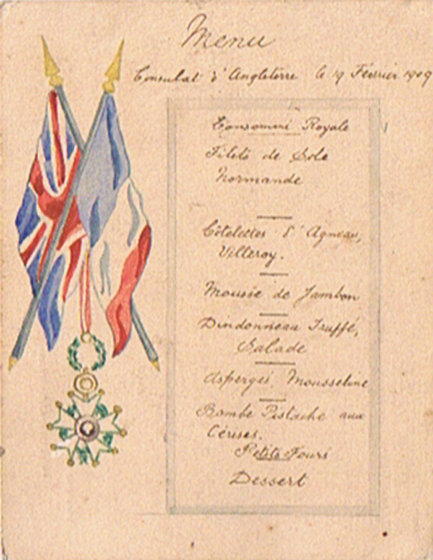 Menu
Consulat d'Angleterre le 19 Février 1909
Consommé Royale
Filets de Sole
Normande
Côtelettes d'Agneau,
Villeroy.
Mousse de Jambon
Dindonneau Truffé,
Salade
Asperges, Mousseline
Bombe Pistache aux
Cerises.
Petits Fours
Dessert